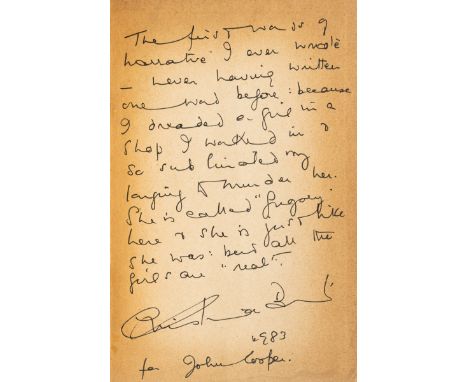 The first words of
narrative I ever wrote
– never having written
one word before: because
I dreaded a girl in a
shop I worked in &
so sublimated my
longing to murder her.
She is called "Gregory"
here & she is just like
she was: and all the
girls are "real".
Christianna Brand
1983
for John Cooper.